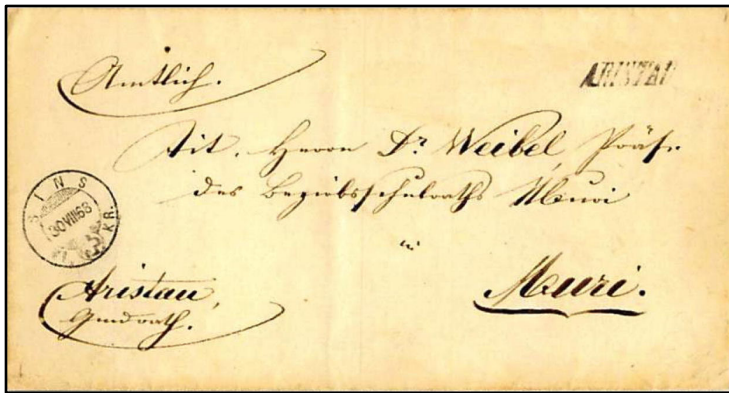 Amtlich.
ARISTAU
Tit. Herrn Dr. Weibel, Präs.
des Bezirksschulraths Muri
in
SINS
30 VIII 68
KR.
Aristau,
Gemdrath.
Muri.